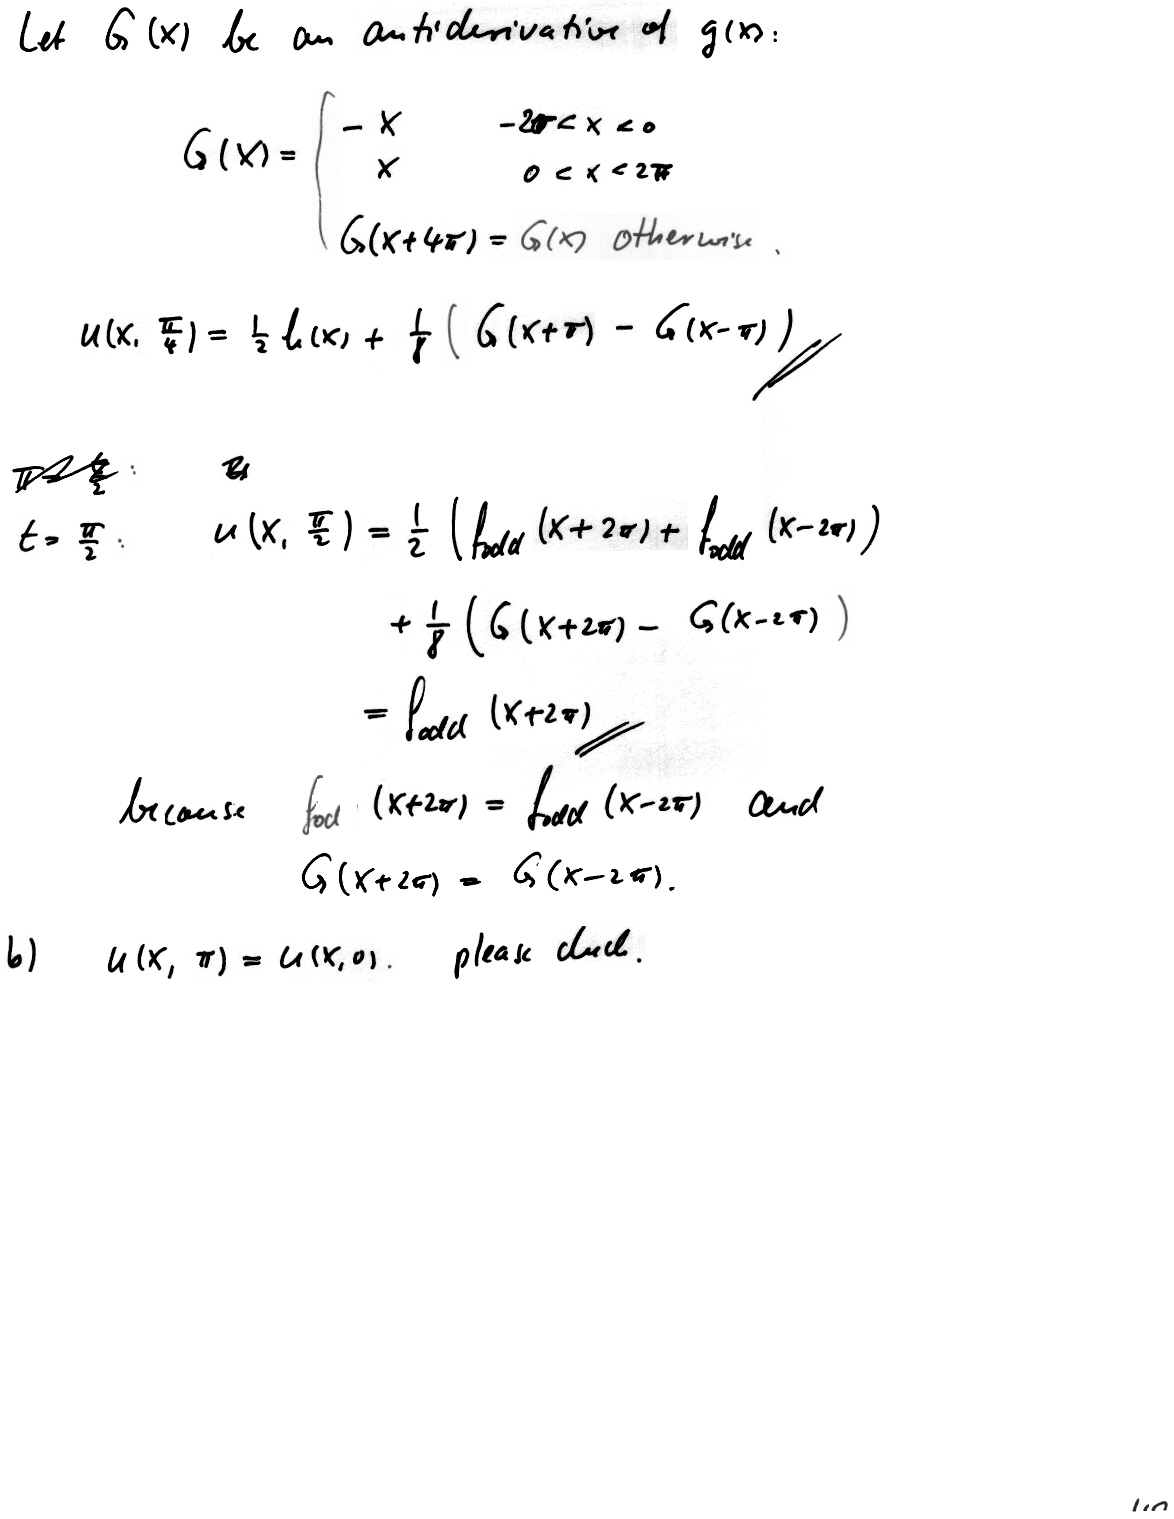 Let G(x) be an antiderivative of g(x):
G(x) = { -x    -2π < x < 0
x    0 < x < 2π
G(x+4π) = G(x) otherwise.
u(x, π/4) = 1/2 h(x) + 1/8 ( G(x+π) - G(x-π) )
t = π/2 : u(x, π/2) = 1/2 ( f_odd (x+2π) + f_odd (x-2π) )
+ 1/8 ( G(x+2π) - G(x-2π) )
= f_odd (x+2π)
because f_od (x+2π) = f_odd (x-2π) and
G(x+2π) = G(x-2π).
b) u(x, π) = u(x,0). please check.